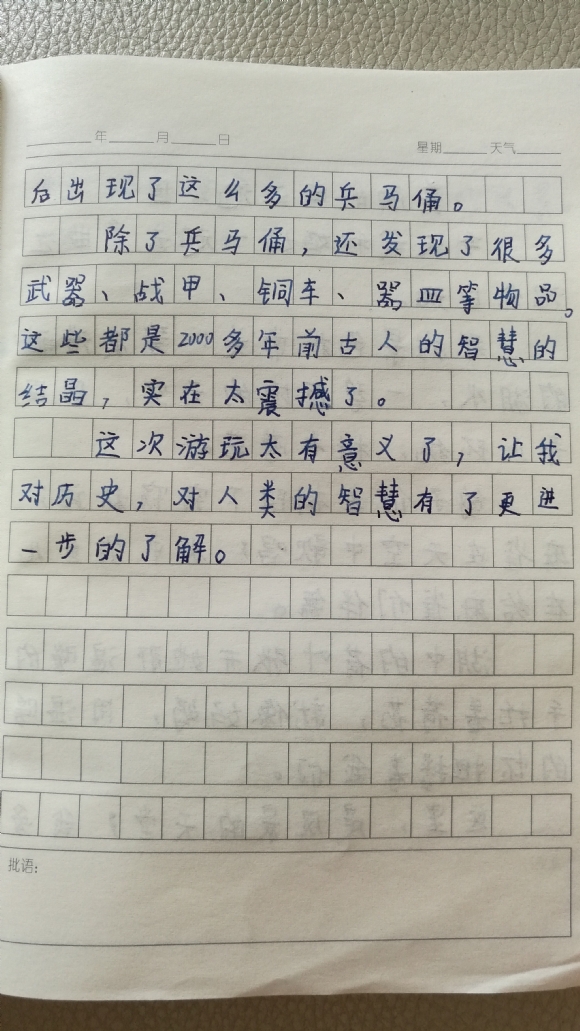 年 月 日 星期 天气
后出现了这么多的兵马俑。
除了兵马俑，还发现了很多
武器、战甲、铜车、器皿等物品。
这些都是2000多年前古人的智慧的
结晶，实在太震撼了。
这次游玩太有意义了，让我
对历史，对人类的智慧有了更进
一步的了解。
批语：